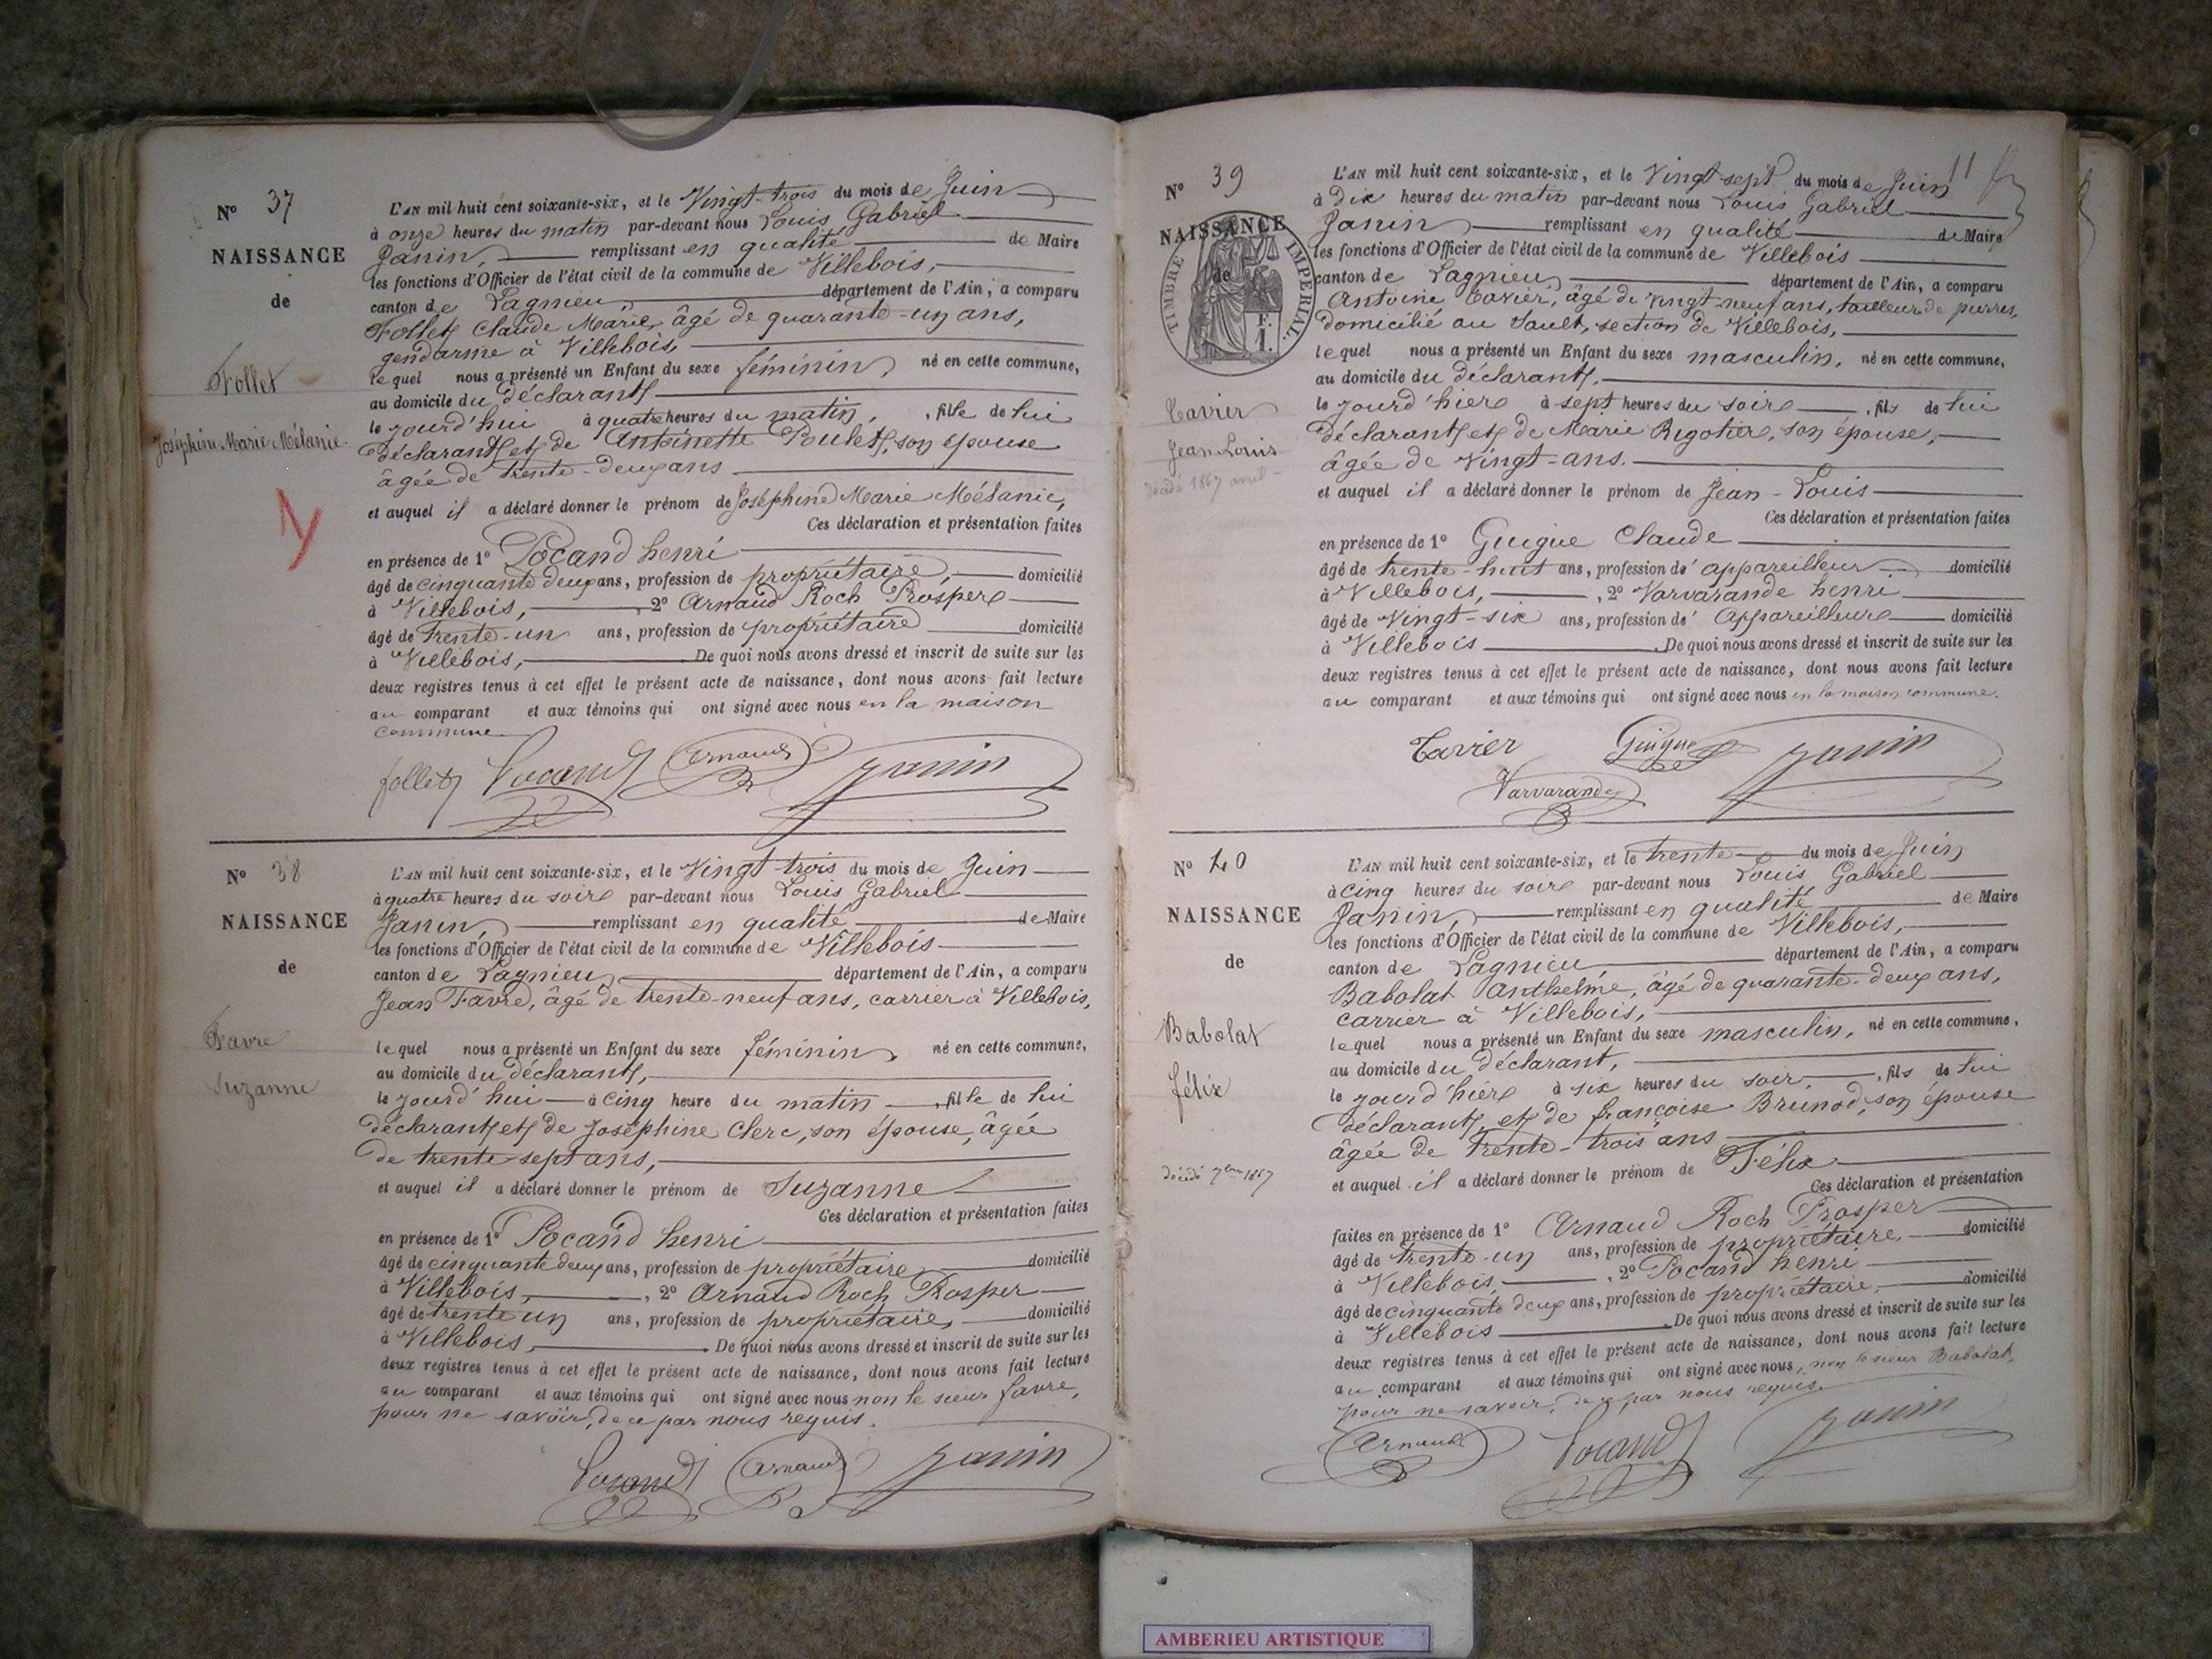 N° 37
NAISSANCE
de
Follet
Joséphine Marie Mélanie
L'AN mil huit cent soixante-six, et le Vingt-trois du mois de Juin
à onze heures du matin par-devant nous Louis Gabriel
Janin, remplissant en qualité de Maire
les fonctions d'Officier de l'état civil de la commune de Villebois,
canton de Lagnieu, département de l'Ain, a comparu
Follet Claude Marie, âgé de quarante-un ans,
gendarme à Villebois,
lequel nous a présenté un Enfant du sexe féminin, né en cette commune,
au domicile du déclarant,
le jourd'hui à quatre heures du matin, fille de lui
déclarant et de Antoinette Poulet, son épouse
âgée de trente-deux ans
et auquel il a déclaré donner le prénom de Joséphine Marie Mélanie,
Ces déclaration et présentation faites
en présence de 1° Pocand henri
âgé de cinquante deux ans, profession de propriétaire, domicilié
à Villebois, 2° Arnaud Roch Prosper
âgé de trente-un ans, profession de propriétaire domicilié
à Villebois, De quoi nous avons dressé et inscrit de suite sur les
deux registres tenus à cet effet le présent acte de naissance, dont nous avons fait lecture
au comparant et aux témoins qui ont signé avec nous en la maison
commune
follet Pocand Arnaud Janin
N° 38
NAISSANCE
de
Favre
Suzanne
L'AN mil huit cent soixante-six, et le Vingt trois du mois de Juin
à quatre heures du soir par-devant nous Louis Gabriel
Janin, remplissant en qualité de Maire
les fonctions d'Officier de l'état civil de la commune de Villebois
canton de Lagnieu, département de l'Ain, a comparu
Jean Favre, âgé de trente-neuf ans, carrier à Villebois,
lequel nous a présenté un Enfant du sexe féminin, né en cette commune,
au domicile du déclarant,
le jourd'hui à cinq heure du matin, fille de lui
déclarant et de Joséphine Clerc, son épouse, âgée
de trente sept ans,
et auquel il a déclaré donner le prénom de Suzanne
Ces déclaration et présentation faites
en présence de 1° Pocand henri
âgé de cinquante deux ans, profession de propriétaire domicilié
à Villebois, 2° Arnaud Roch Prosper
âgé de trente un ans, profession de propriétaire, domicilié
à Villebois, De quoi nous avons dressé et inscrit de suite sur les
deux registres tenus à cet effet le présent acte de naissance, dont nous avons fait lecture
au comparant et aux témoins qui ont signé avec nous non le sieur favre,
pour ne savoir, de ce par nous requis.
Pocand Arnaud Janin
N° 39
NAISSANCE
de
TIMBRE IMPERIAL
F.
1.
Tavier
Jean-Louis
décédé 1867 avril
L'AN mil huit cent soixante-six, et le Vingt-sept du mois de Juin
à dix heures du matin par-devant nous Louis Gabriel
Janin remplissant en qualité de Maire
les fonctions d'Officier de l'état civil de la commune de Villebois
canton de Lagnieu, département de l'Ain, a comparu
Antoine Tavier, âgé de vingt-neuf ans, tailleur de pierres,
domicilié au Sault, section de Villebois,
lequel nous a présenté un Enfant du sexe masculin, né en cette commune,
au domicile du déclarant,
le jourd'hier à sept heures du soir, fils de lui
déclarant et de Marie Rigotier, son épouse,
âgée de vingt-ans.
et auquel il a déclaré donner le prénom de Jean-Louis
Ces déclaration et présentation faites
en présence de 1° Guigue Claude
âgé de trente-huit ans, profession d'appareilleur domicilié
à Villebois, 2° Varvarande henri
âgé de Vingt-six ans, profession d'Appareilleur domicilié
à Villebois De quoi nous avons dressé et inscrit de suite sur les
deux registres tenus à cet effet le présent acte de naissance, dont nous avons fait lecture
au comparant et aux témoins qui ont signé avec nous en la maison commune.
Tavier Guigue Janin
Varvarande
N° 40
NAISSANCE
de
Babolat
félix
décédé 7bre 1867
L'AN mil huit cent soixante-six, et le trente du mois de Juin
à cinq heures du soir par-devant nous Louis Gabriel
Janin, remplissant en qualité de Maire
les fonctions d'Officier de l'état civil de la commune de Villebois,
canton de Lagnieu département de l'Ain, a comparu
Babolat Anthelme, âgé de quarante-deux ans,
carrier à Villebois,
lequel nous a présenté un Enfant du sexe masculin, né en cette commune,
au domicile du déclarant,
le jourd'hier à six heures du soir, fils de lui
déclarant, et de françoise Brunod, son épouse
âgée de trente-trois ans
et auquel il a déclaré donner le prénom de Félix
Ces déclaration et présentation
faites en présence de 1° Arnaud Roch Prosper
âgé de trente-un ans, profession de propriétaire domicilié
à Villebois, 2° Pocand henri
âgé de cinquante deux ans, profession de propriétaire, domicilié
à Villebois De quoi nous avons dressé et inscrit de suite sur les
deux registres tenus à cet effet le présent acte de naissance, dont nous avons fait lecture
au comparant et aux témoins qui ont signé avec nous, non le sieur Babolat,
pour ne savoir, de ce par nous requis.
Arnaud Pocand Janin
AMBERIEU ARTISTIQUE